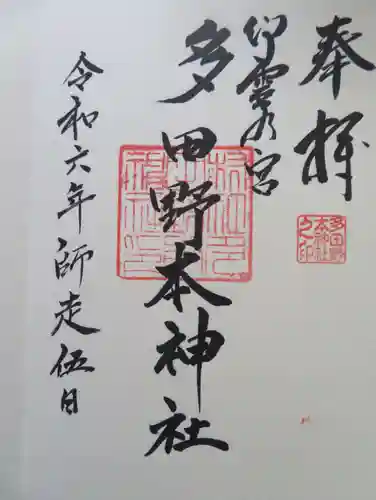 奉拝
御霊乃宮
多田野本神社
令和六年師走伍日